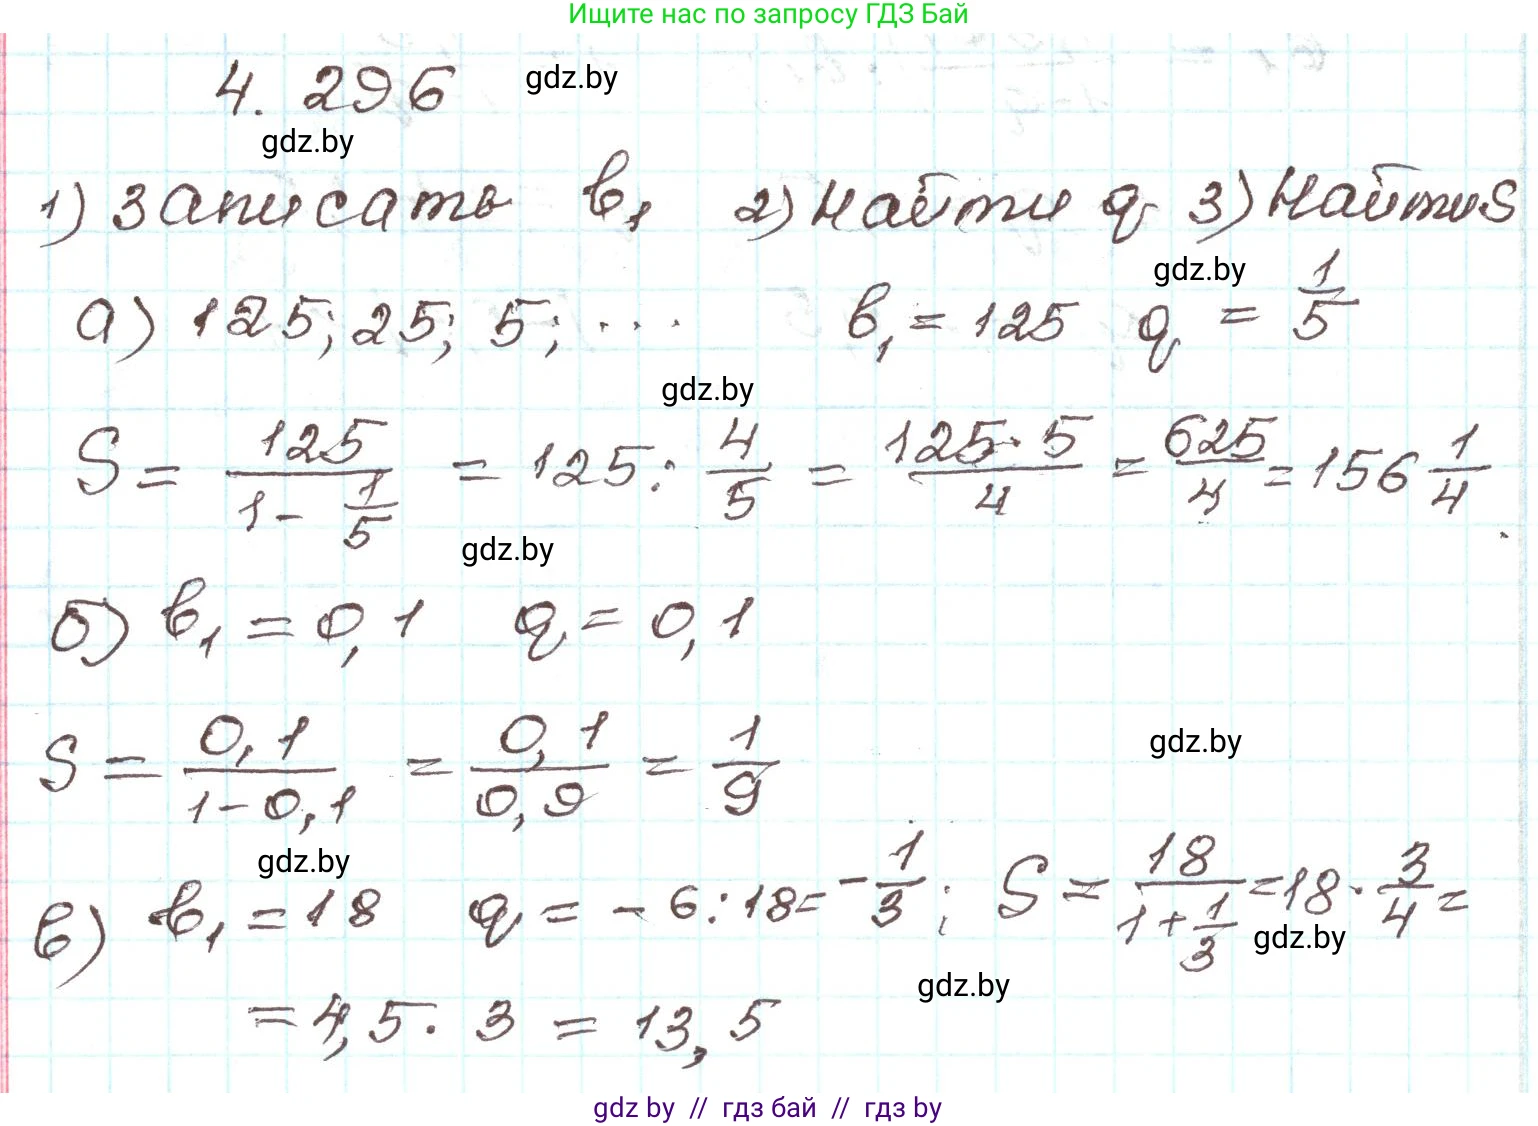 Ищите нас по запросу ГДЗ Бай
4.296 gdz.by
gdz.by
1) Записать b₁ 2) Найти q 3) Найти S
gdz.by
а) 125; 25; 5; ... b₁ = 125 q = 1/5
gdz.by
S = 125/(1 - 1/5) = 125 : 4/5 = 125·5/4 = 625/4 = 156 1/4
gdz.by
б) b₁ = 0,1 q = 0,1
S = 0,1/(1-0,1) = 0,1/0,9 = 1/9
gdz.by
gdz.by
в) b₁ = 18 q = -6:18 = -1/3; S = 18/(1+1/3) = 18·3/4 =
gdz.by
gdz.by
= 4,5·3 = 13,5
gdz by // гдз бай // гдз by